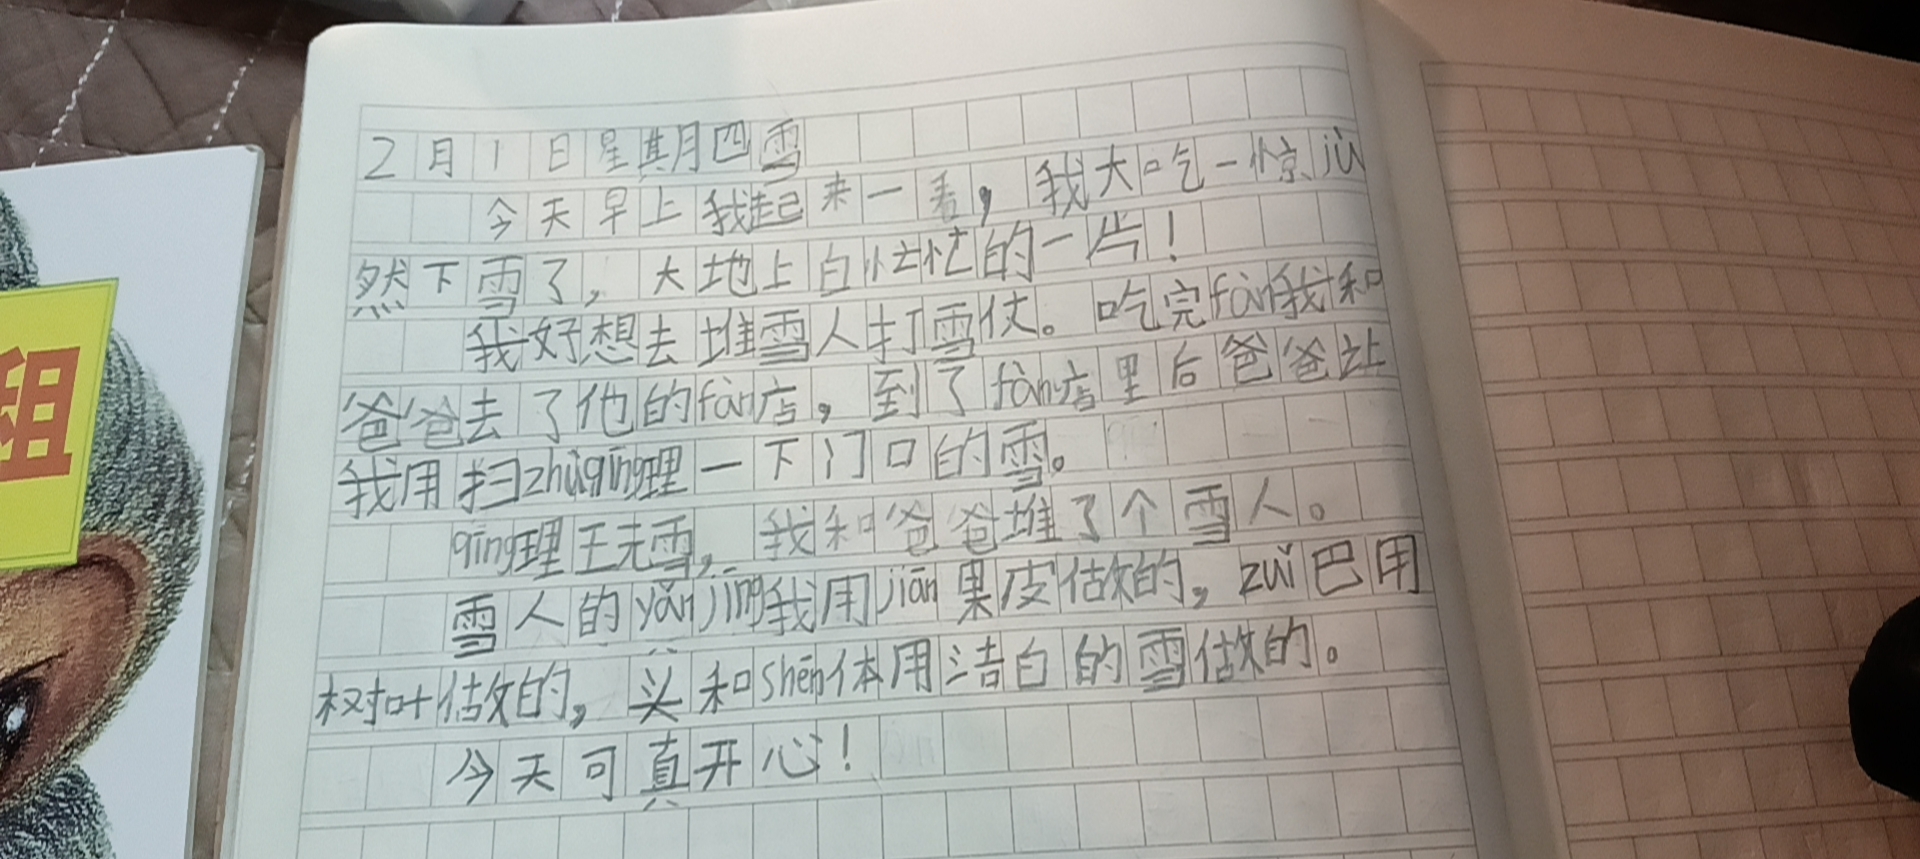 2月1日星期四雪
今天早上我起来一看，我大吃一惊jù
然下雪了，大地上白忙忙的一片！
我好想去堆雪人打雪仗。吃完fàn我和
爸爸去了他的fàn店，到了fàn店里后爸爸让
我用扫zhǔqīng理一下门口的雪。
qīng理王元雪，我和爸爸堆了个雪人。
雪人的yǎnjīng我用jiān果皮做的，zuǐ巴用
树叶做的，头和shēn体用洁白的雪做的。
今天可真开心！
租